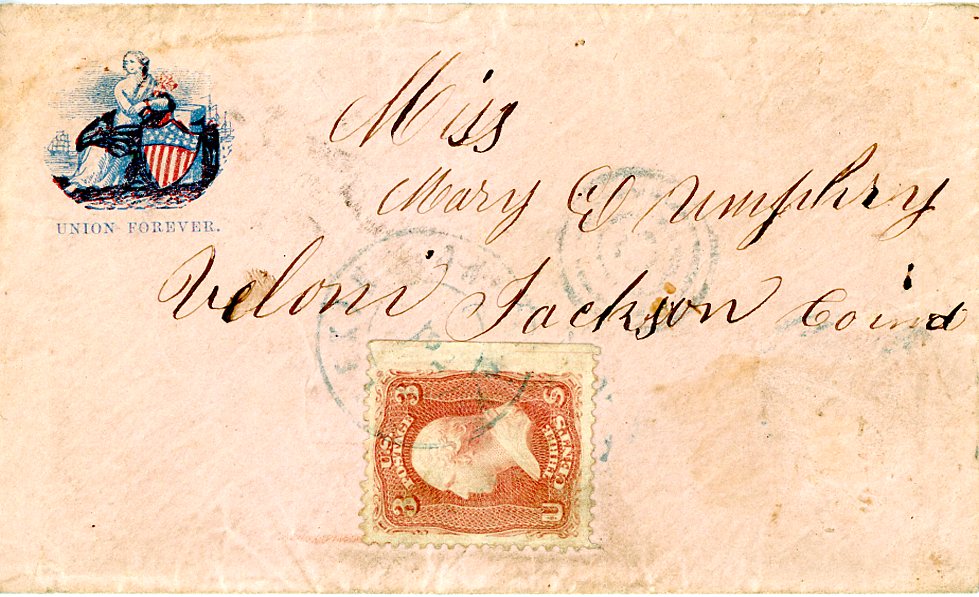 UNION FOREVER.
Miss
Mary E Umphry
Veloni Jackson Co ind
3 U.S. POSTAGE 3
THREE CENTS
U S